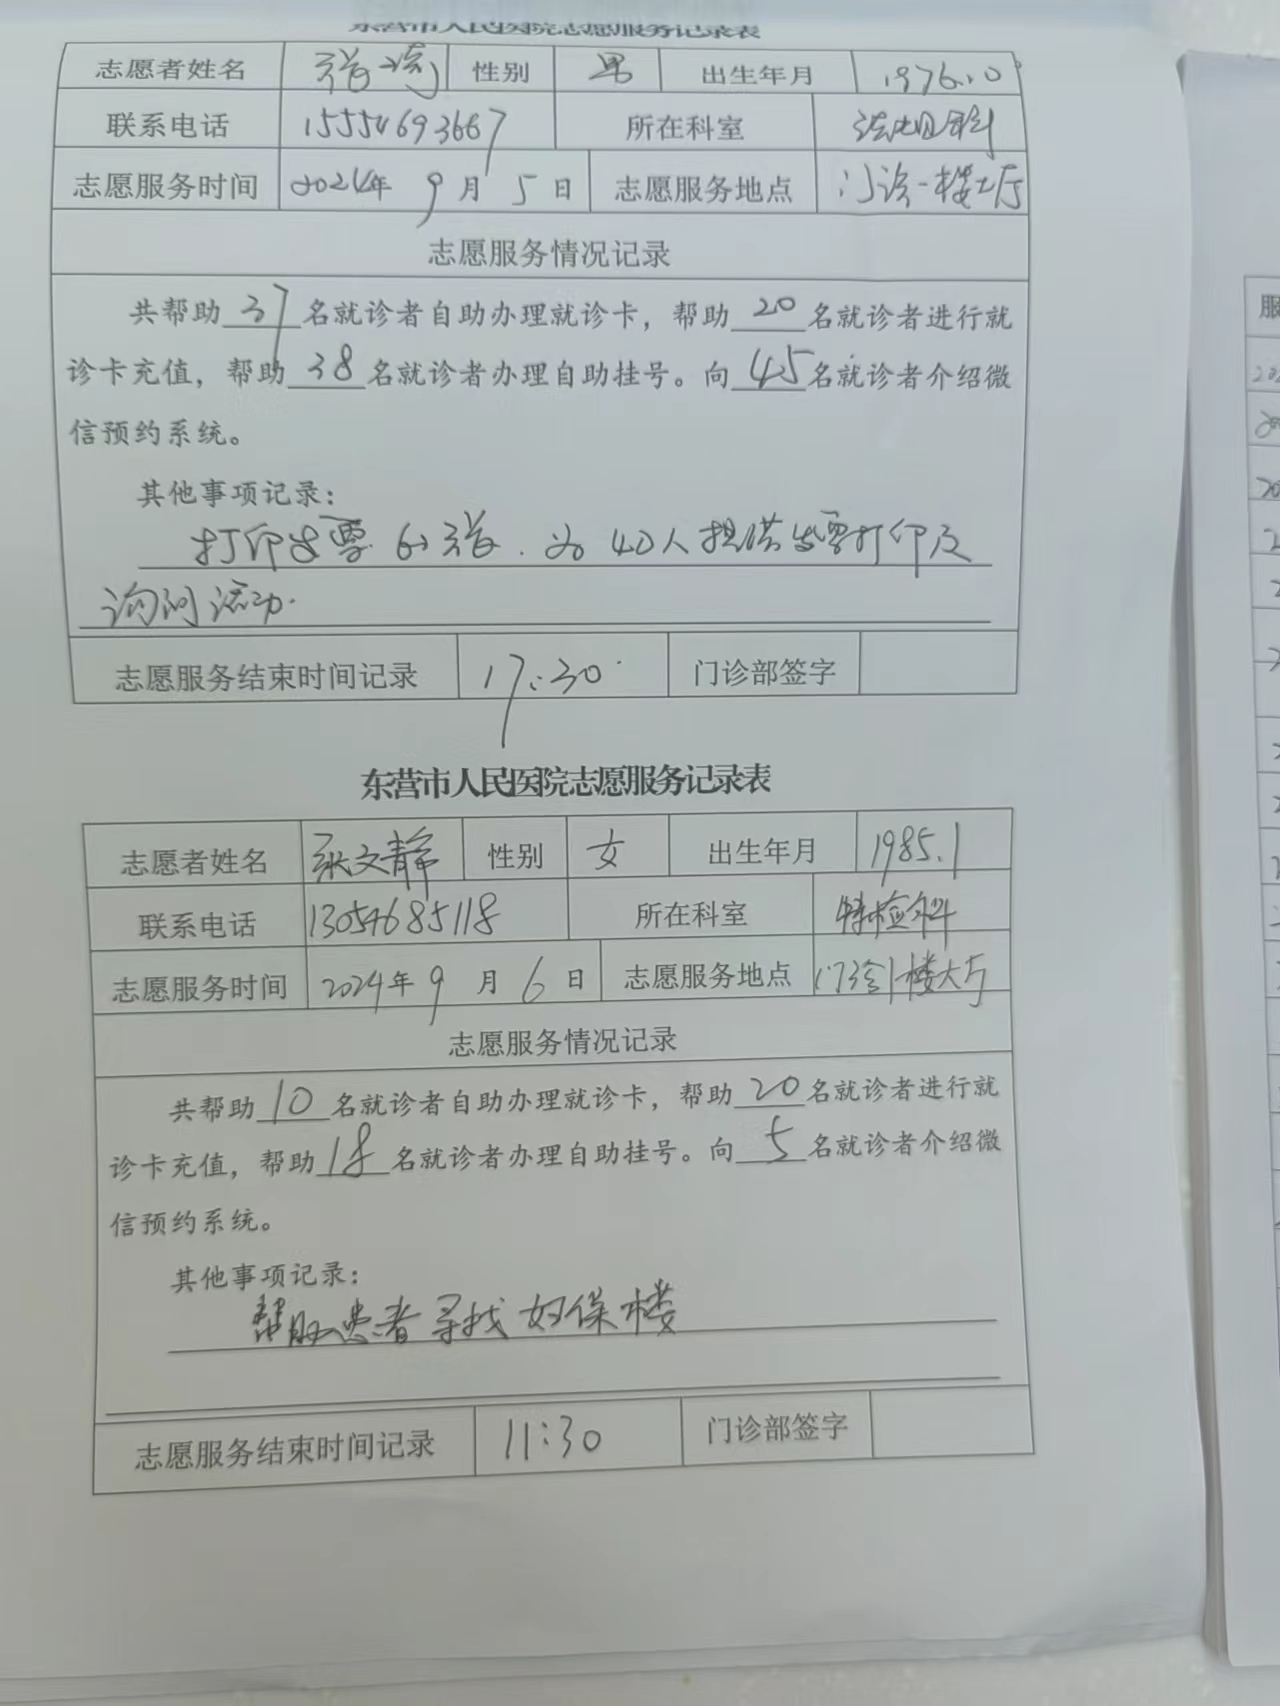 东营市人民医院志愿服务记录表
志愿者姓名 张琦 性别 男 出生年月 1976.10
联系电话 15554693667 所在科室
志愿服务时间 2024年 9 月 5 日 志愿服务地点 门诊一楼大厅
志愿服务情况记录
共帮助 37 名就诊者自助办理就诊卡，帮助 20 名就诊者进行就
诊卡充值，帮助 38 名就诊者办理自助挂号。向 45 名就诊者介绍微
信预约系统。
其他事项记录：
打印发票 60张. 为 40人提供发票打印及
询问活动.
志愿服务结束时间记录 17:30 门诊部签字
东营市人民医院志愿服务记录表
志愿者姓名 张文静 性别 女 出生年月 1985.1
联系电话 13054685118 所在科室 特检科
志愿服务时间 2024年 9 月 6 日 志愿服务地点 门诊1楼大厅
志愿服务情况记录
共帮助 10 名就诊者自助办理就诊卡，帮助 20 名就诊者进行就
诊卡充值，帮助 18 名就诊者办理自助挂号。向 5 名就诊者介绍微
信预约系统。
其他事项记录：
帮助患者寻找妇保楼
志愿服务结束时间记录 11:30 门诊部签字
服